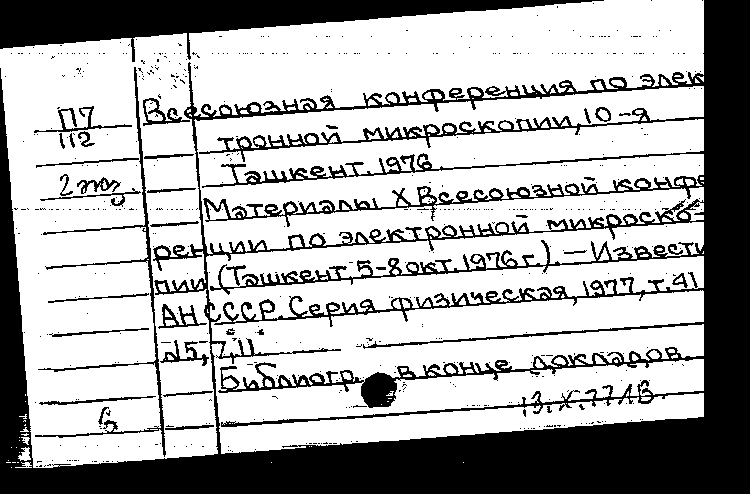 П7
112
2 экз.
Всесоюзная конференция по элек
тронной микроскопии, 10-я
Ташкент. 1976.
Материалы X Всесоюзной конфе
ренции по электронной микроско-
пии. (Ташкент, 5-8 окт. 1976 г.). – Извести
АН СССР. Серия физическая, 1977, т. 41
№5, 7, 11.
Библиогр. в конце докладов.